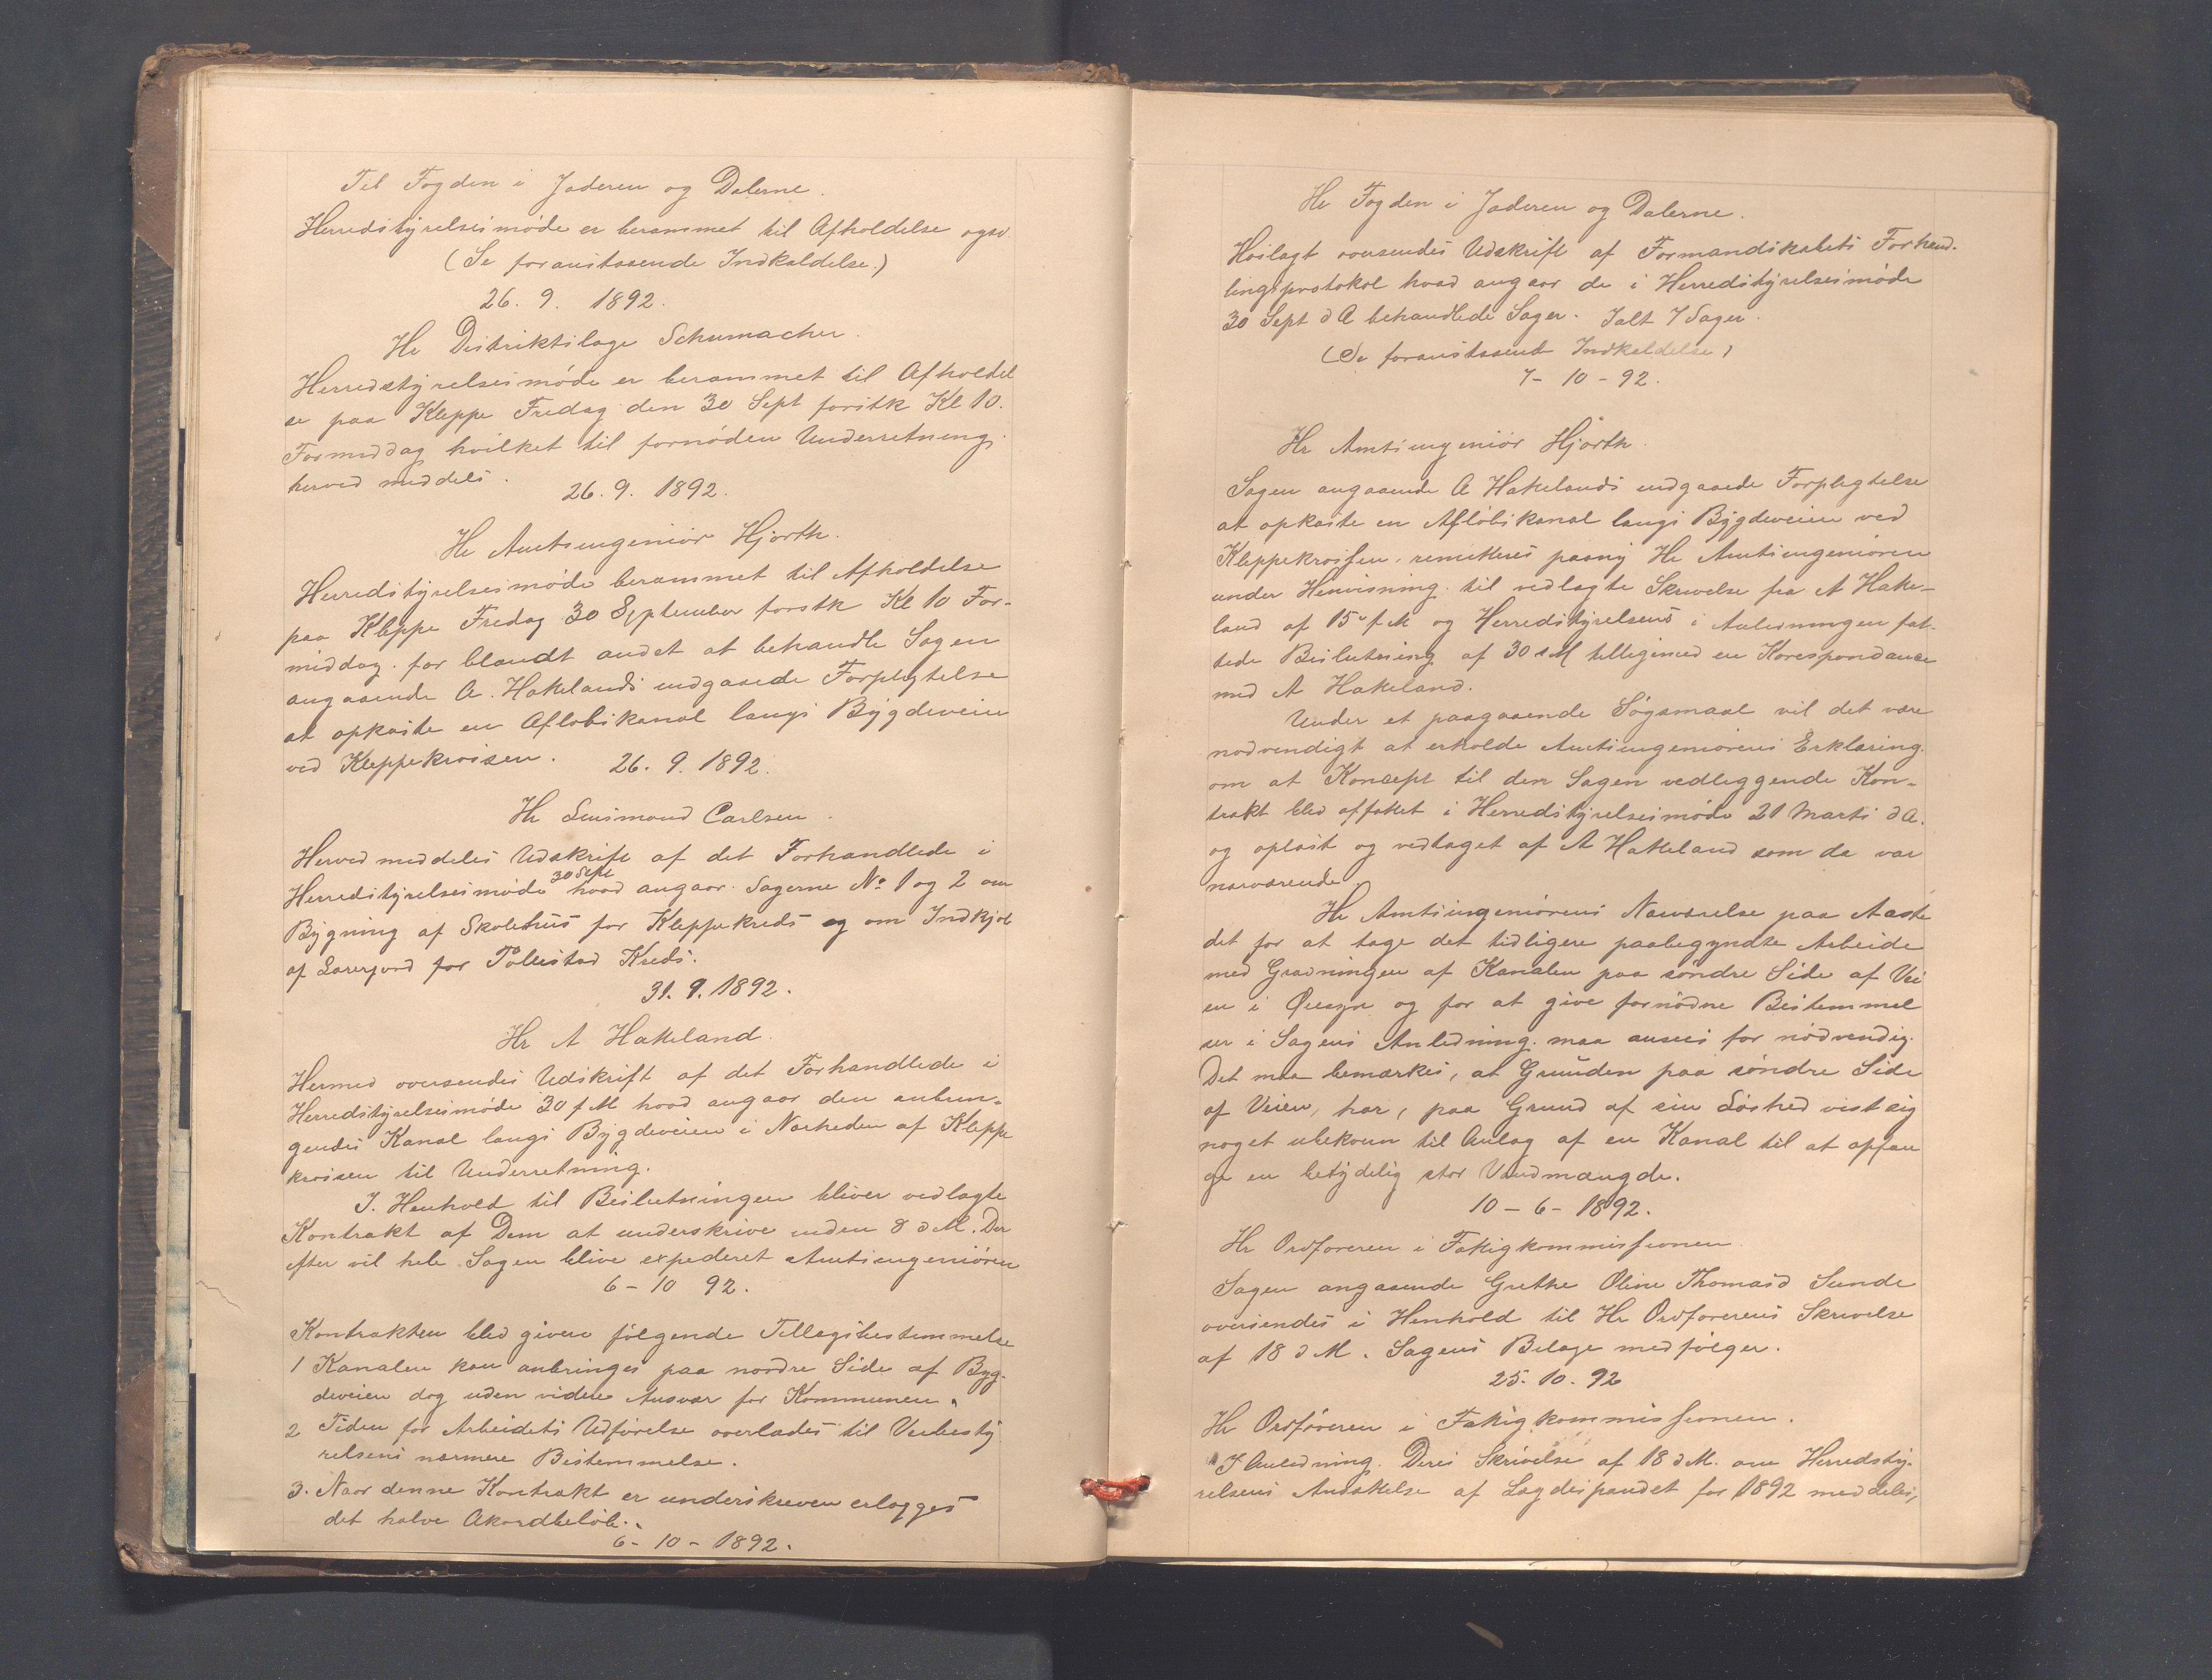 Til Fogden i Jæderen og Dalerne.
Herredstyrelsesmøde er berammet til Afholdelse ogsv.
(Se foranstaaende Indkaldelse.)
26. 9. 1892.
Hr Distriktslæge Schumacher.
Herredstyrelsesmøde er berammet til Afholdel
se paa Kleppe Fredag den 30 Sept førstk Kl 10.
Formiddag hvilket til fornøden Underretning
herved meddeles.
26. 9. 1892.
Hr Amtsingeniør Hjorth.
Herredstyrelsesmøde berammet til Afholdelse
paa Kleppe Fredag 30 September førstk Kl 10 For-
middag. for blandt andet at behandle Sagen
angaaende A. Hakelands indgaaede Forpligtelse
at opkaste en Afløbskanal langs Bygdeveien
ved Kleppekrossen.
26. 9. 1892.
Hr Lensmand Carlsen.
Herved meddeles Udskrift af det Forhandlede i
Herredstyrelsesmøde 30 Sept hvad angaar Sagerne No 1 og 2 om
Bygning af Skolehus for Kleppekreds og om Indkjøb
af Lærerjord for Tøllestad Kreds.
31. 9. 1892.
Hr A Hakeland.
Hermed oversendes Udskrift af det Forhandlede i
Herredstyrelsesmøde 30 f M hvad angaar den anbrin-
gendes Kanal langs Bygdeveien i Nærheden af Kleppe
krossen til Underretning.
I. Henhold til Beslutningen bliver vedlagte
Kontrakt af Dem at underskrive inden 8 d M. Der
efter vil hele Sagen blive expederet Amtsingeniøren
6 - 10 92.
Kontrakten blev given følgende Tillægsbestemmelse
1 Kanalen kan anbringes paa nordre Side af Byg-
deveien dog uden videre Ansvar for Kommunen.
2 Tiden for Arbeidets Udførelse overlades til Veibesty
relsens nærmere Bestemmelse.
3. Naar denne Kontrakt er underskreven erlægges
det halve Akordbeløb.
6 - 10 - 1892.
Hr Fogden i Jæderen og Dalerne.
Høilagt oversendes Udskrift af Formandskabets Forhand-
lingsprotokol hvad angaar de i Herredstyrelsesmøde
30 Sept d A behandlede Sager. Ialt 7 Sager.
(Se foranstaaende Indkaldelse)
7 - 10 - 92.
Hr Amtsingeniør Hjorth.
Sagen angaaende A Hakelands indgaaede Forpligtelse
at opkaste en Afløbskanal langs Bygdeveien ved
Kleppekrossen, remitteres paany Hr Amtsingeniøren
under Henvisning til vedlagte Skrivelse fra A Hake-
land af 15 f M og Herredstyrelsens i Anledningen fat-
tede Beslutning af 30 s M tilligemed en Korespondance
med A Hakeland.
Under et paagaaende Søgsmaal vil det være
nødvendigt at erholde Amtsingeniørens Erklæring
om at Koncept til den Sagen vedliggende Kon-
trakt blev affattet i Herredstyrelsesmøde 21 Marts d A.
og oplæst og vedtaget af A Hakeland som da var
nærværende.
Hr Amtsingeniørens Nærværelse paa Aaste
det for at tage det tidligere paabegyndte Arbeide
med Gravningen af Kanalen paa søndre Side af Vei
en i Øiesyn og for at give fornødne Bestemmel
ser i Sagens Anledning. maa ansees for nødvendig.
Det maa bemærkes, at Grunden paa søndre Side
af Veien, har, paa Grund af sin Løshed vist sig
noget ubekvem til Anlæg af en Kanal til at opfan
ge en betydelig stor Vandmængde.
10 - 6 - 1892.
Hr Ordføreren i Fattigkommissionen
Sagen angaaende Grethe Oline Thomasd Sunde
oversendes i Henhold til Hr Ordførerens Skrivelse
af 18 d M. Sagens Bilage medfølger.
25. 10. 92
Hr Ordføreren i Fattigkommissionen.
I Anledning. Deres Skrivelse af 18 d M. om Herredsty-
relsens Anskuelse af Lægdespændet for 1892 meddeles,